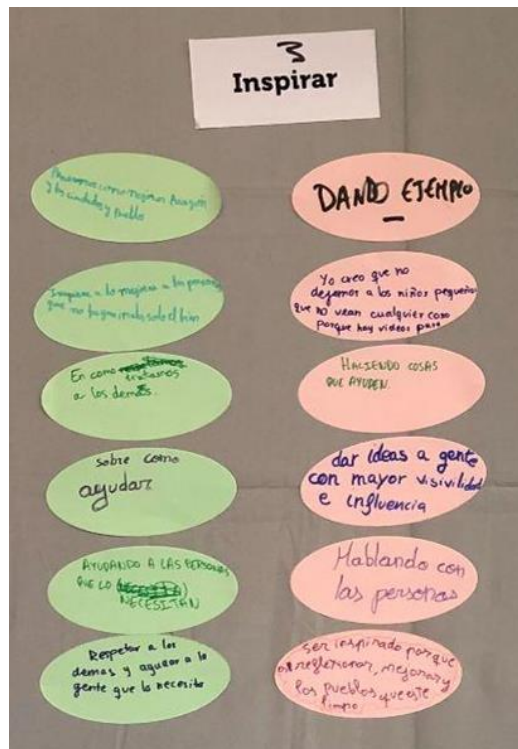 3
Inspirar
como mejorar Aragón
y las ciudades y Pueblo
a lo mejor a las personas
que no hagan mal solo el bien
En como
tratamos
a los demás.
sobre como
ayudar
AYUDANDO A LAS PERSONAS
QUE LO
NECESITAN
Respetar a los
demas y ayudar a la
gente que lo necesite
DANDO EJEMPLO
Yo creo que no
dejemos a los niños pequeños
que no vean cualquier cosa
porque hay videos para
HACIENDO COSAS
QUE AYUDEN.
dar ideas a gente
con mayor visivilidad
e influencia
Hablando con
las personas
ser inspirado porque
reflexionar, mejorar y
los pueblos que este
limpo